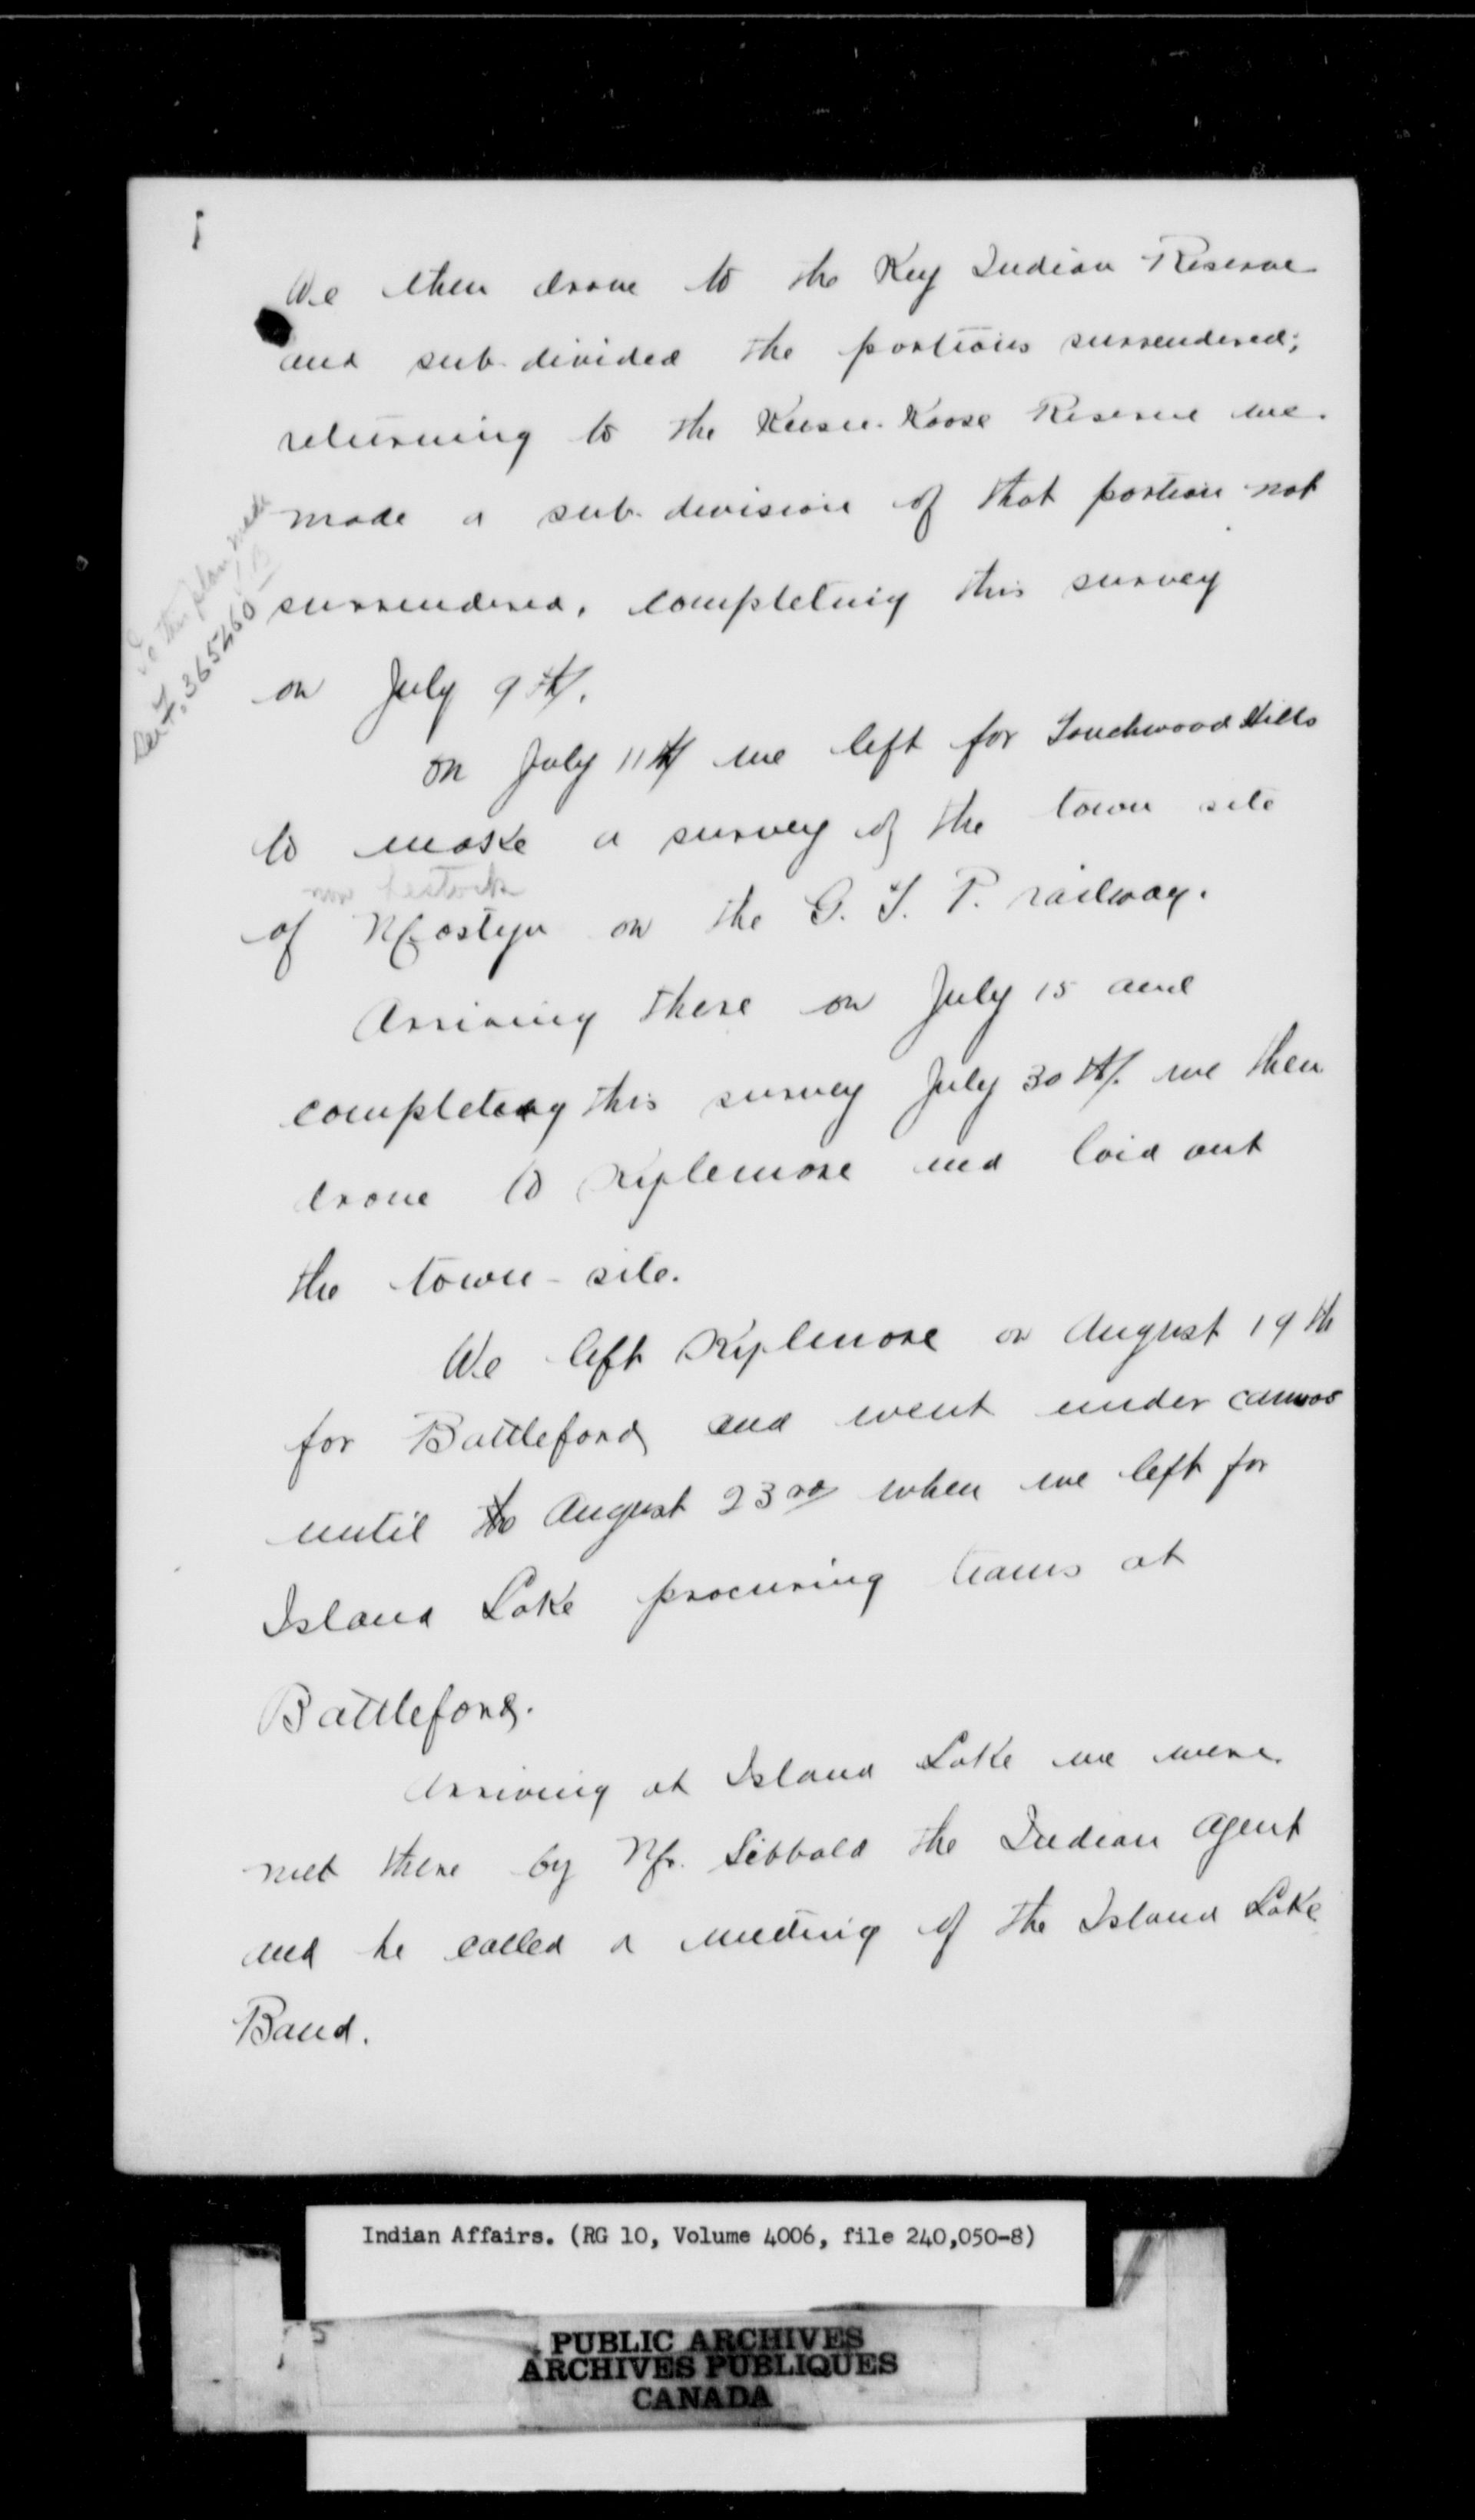 We then drove to the Key Indian Reserve
and sub-divided the portions surrendered;
returning to the Keesee-Koose Reserve we
made a sub-division of that portion not
surrendered, completing this survey
on July 9th.
Is this plan made
Let. 365460
on July 11th we left for Touchwood Hills
to make a survey of the town site
now Lestock
of Mostyn on the G. T. P. railway.
Arriving there on July 15 and
completing this survey July 30th. we then
drove to Kylemore and laid out
the town-site.
We left Kylemore on August 19th
for Battleford and went under canvas
until August 23rd when we left for
Island Lake procuring teams at
Battleford.
Arriving at Island Lake we were
met there by Mr. Sibbald the Indian Agent
and he called a meeting of the Island Lake
Band.
Indian Affairs. (RG 10, Volume 4006, file 240,050-8)
PUBLIC ARCHIVES
ARCHIVES PUBLIQUES
CANADA